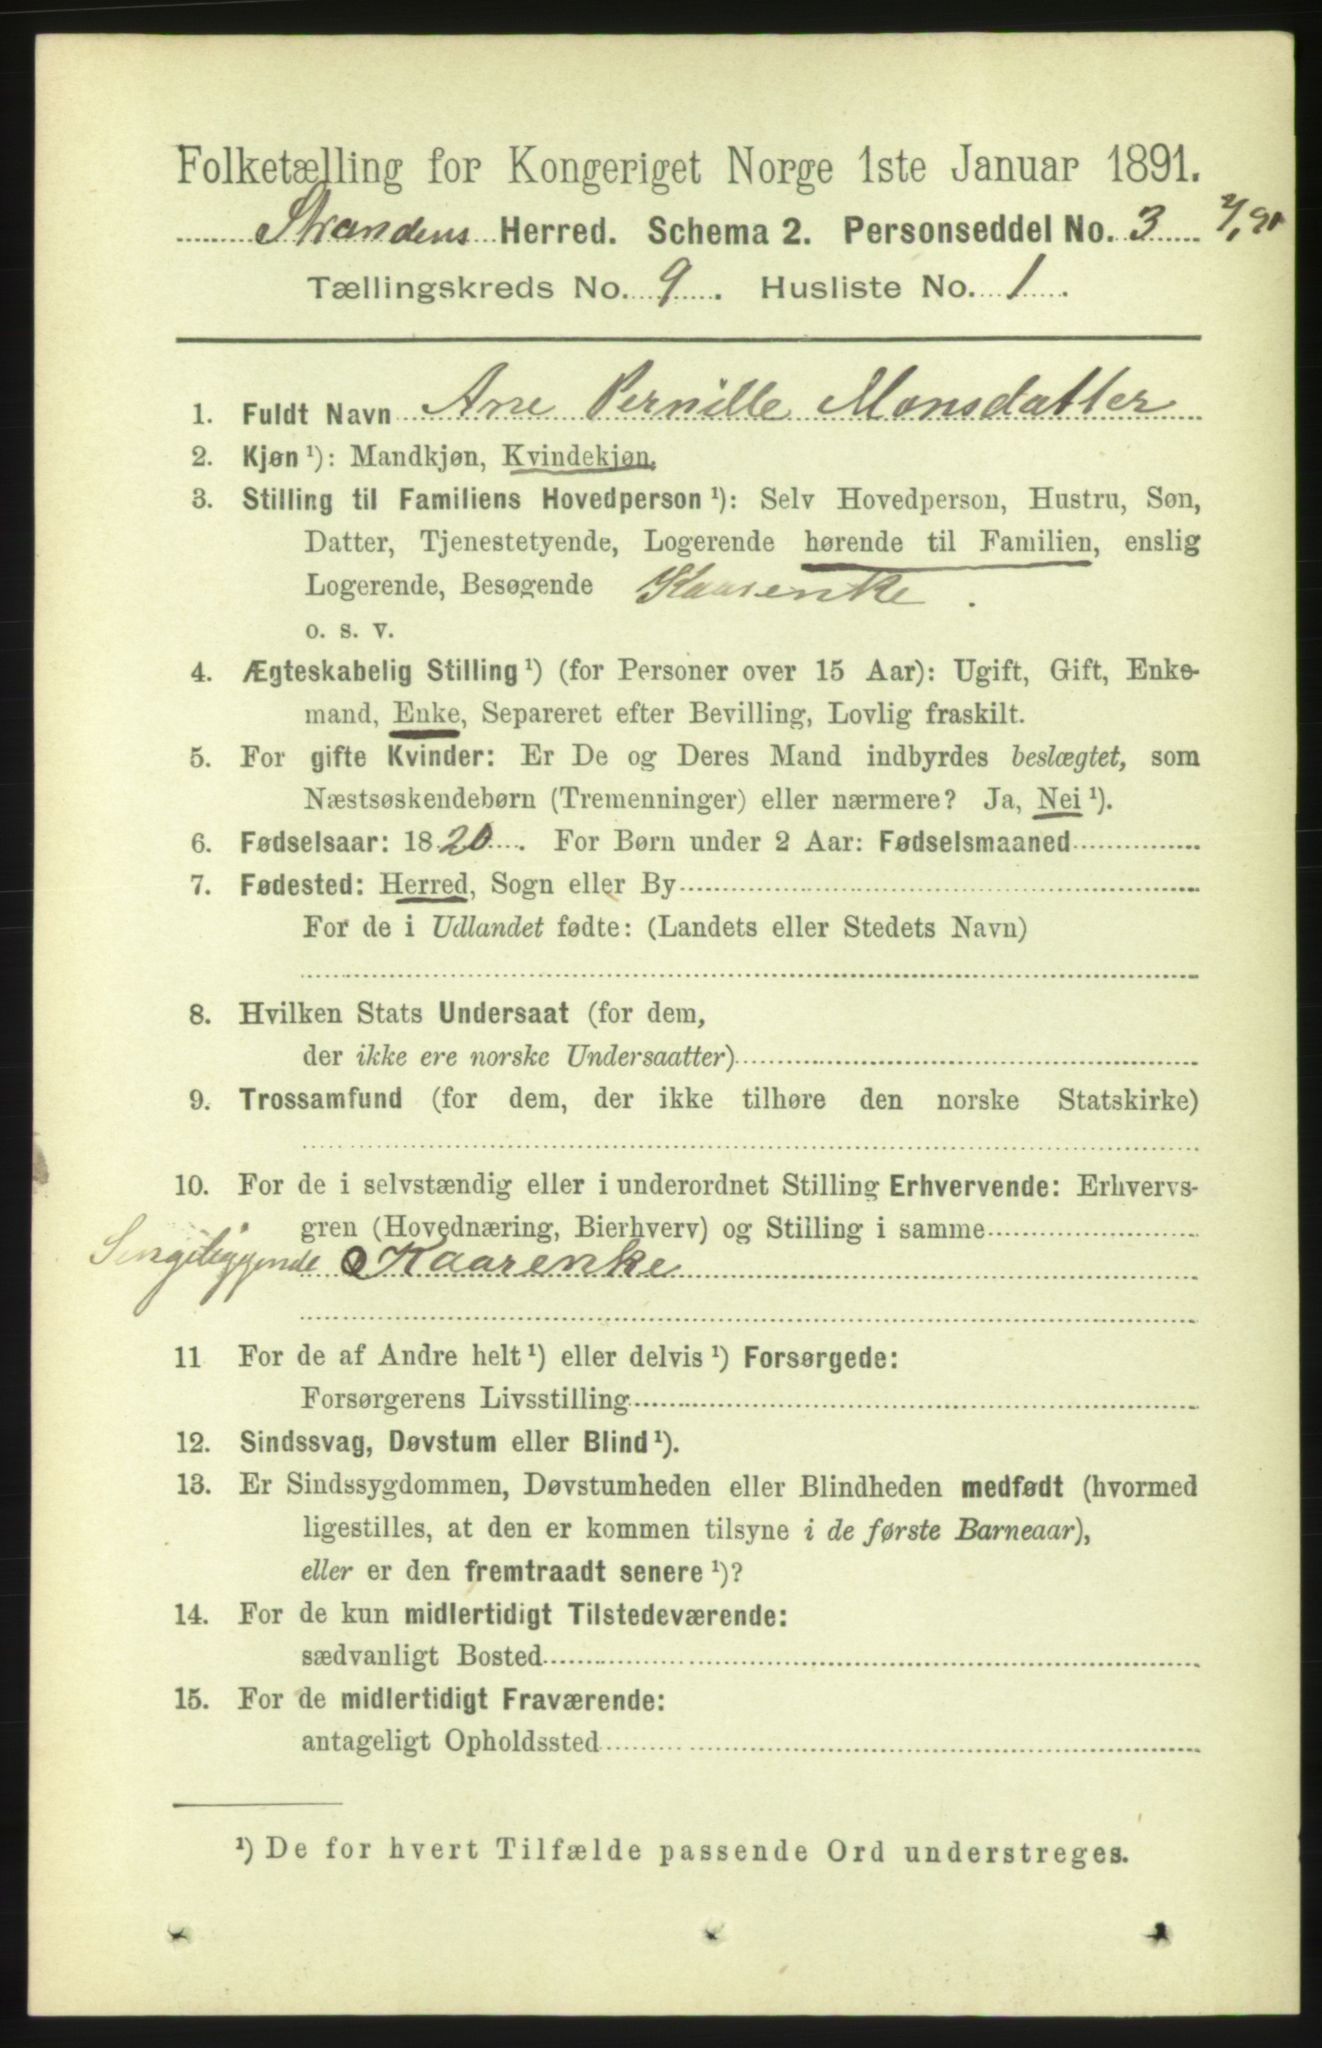 Folketælling for Kongeriget Norge 1ste Januar 1891.
Strandens Herred. Schema 2. Personseddel No. 3
Tællingskreds No. 9. Husliste No. 1.
1. Fuldt Navn Ane Pernille Monsdatter
2. Kjøn ¹): Mandkjøn, Kvindekjøn.
3. Stilling til Familiens Hovedperson ¹): Selv Hovedperson, Hustru, Søn,
Datter, Tjenestetyende, Logerende hørende til Familien, enslig
Logerende, Besøgende Kaarenke.
o. s. v.
4. Ægteskabelig Stilling ¹) (for Personer over 15 Aar): Ugift, Gift, Enke-
mand, Enke, Separeret efter Bevilling, Lovlig fraskilt.
5. For gifte Kvinder: Er De og Deres Mand indbyrdes beslægtet, som
Næstsøskendebørn (Tremenninger) eller nærmere? Ja, Nei ¹).
6. Fødselsaar: 1820. For Børn under 2 Aar: Fødselsmaaned
7. Fødested: Herred, Sogn eller By
For de i Udlandet fødte: (Landets eller Stedets Navn)
8. Hvilken Stats Undersaat (for dem,
der ikke ere norske Undersaatter)
9. Trossamfund (for dem, der ikke tilhøre den norske Statskirke)
10. For de i selvstændig eller i underordnet Stilling Erhvervende: Erhvervs-
gren (Hovednæring, Bierhverv) og Stilling i samme
Sengeliggende Kaarenke
11 For de af Andre helt ¹) eller delvis ¹) Forsørgede:
Forsørgerens Livsstilling
12. Sindssvag, Døvstum eller Blind ¹).
13. Er Sindssygdommen, Døvstumheden eller Blindheden medfødt (hvormed
ligestilles, at den er kommen tilsyne i de første Barneaar),
eller er den fremtraadt senere ¹)?
14. For de kun midlertidigt Tilstedeværende:
sædvanligt Bosted
15. For de midlertidigt Fraværende:
antageligt Opholdssted
¹) De for hvert Tilfælde passende Ord understreges.